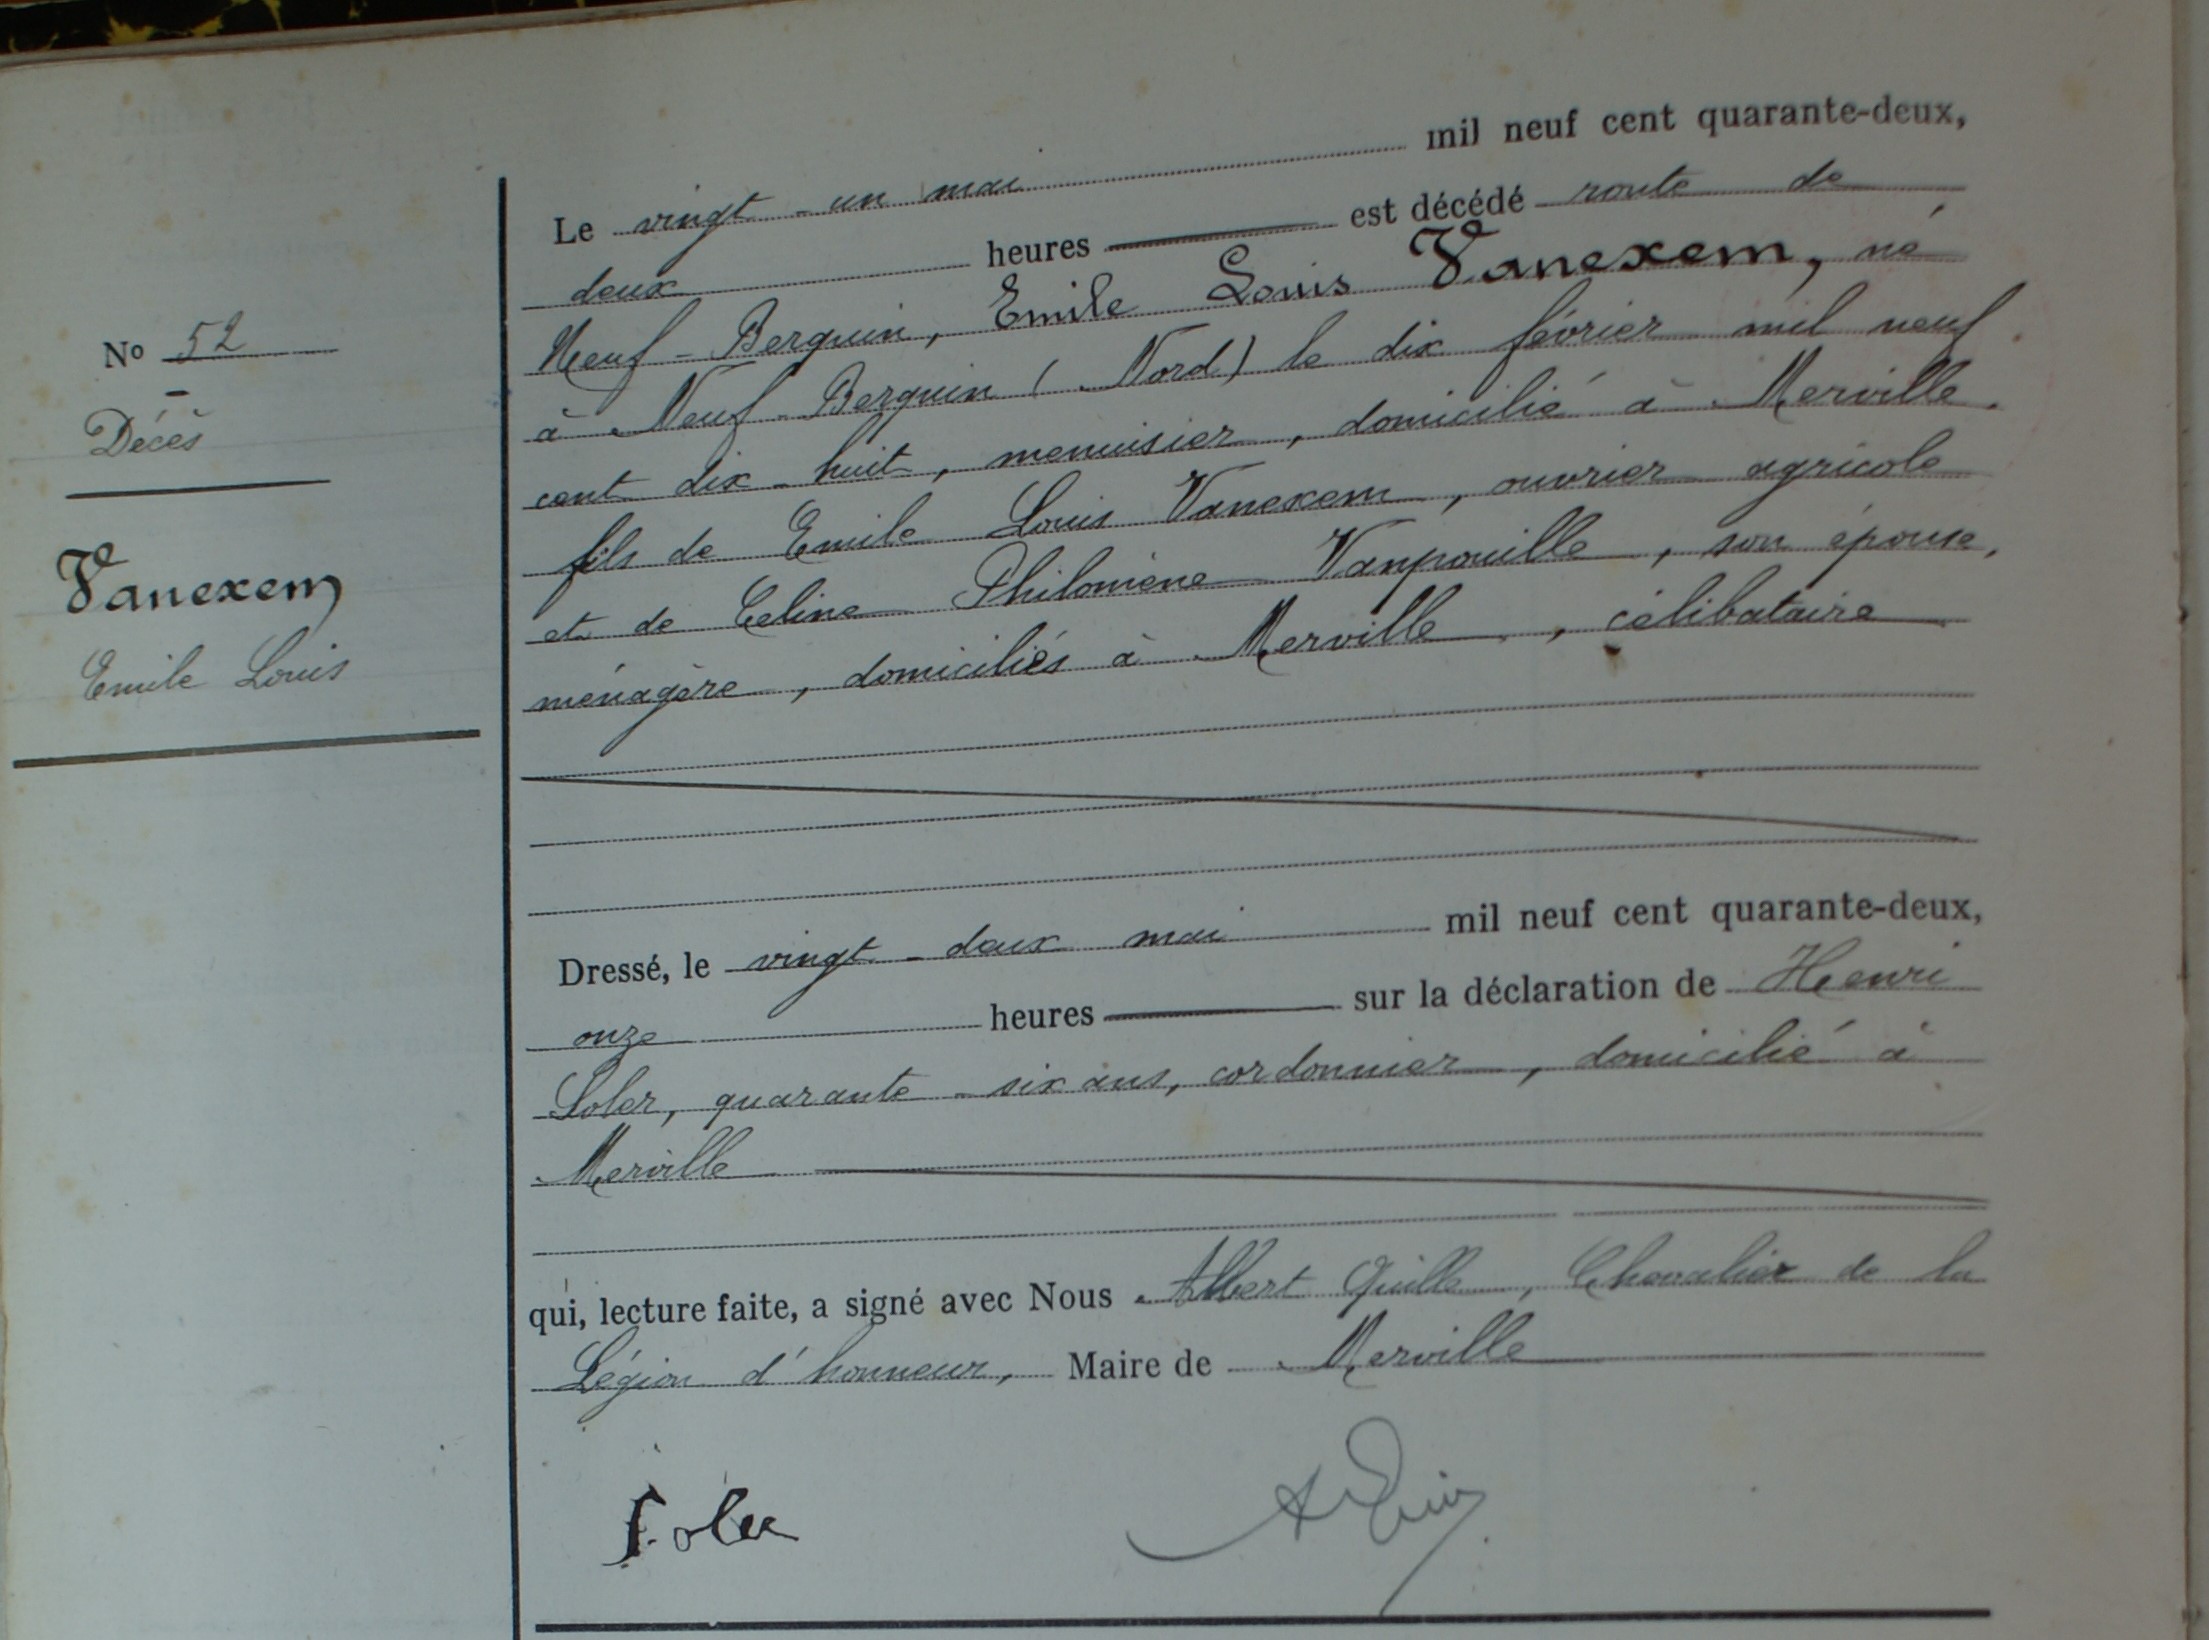 No 52
Décès
Vanexem
Emile Louis
Le vingt-un mai mil neuf cent quarante-deux,
deux heures est décédé route de
Neuf-Berquin, Emile Louis Vanexem, né
à Neuf-Berquin (Nord) le dix février mil neuf
cent dix-huit, menuisier, domicilié à Merville.
fils de Emile Louis Vanexem, ouvrier agricole
et de Celine Philomène Vanpouille, son épouse,
ménagère, domiciliés à Merville, célibataire
Dressé, le vingt-deux mai mil neuf cent quarante-deux,
onze heures sur la déclaration de Henri
Soler, quarante-six ans, cordonnier, domicilié à
Merville
qui, lecture faite, a signé avec Nous Albert Quille, Chevalier de la
Légion d'honneur, Maire de Merville
Soler